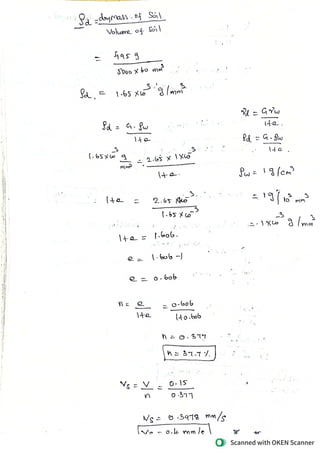 ρd = dry mass of soil
Volume of soil
= 495 g
5000 × 60 mm³
ρd = 1.65×10⁻³ g/mm³
γd = G γw
1+e
ρd = G. ρw
1+e
ρd = G. ρw
1+e
1.65×10⁻³ g/mm³ = 2.65 × 1×10⁻³
1+e
ρw = 1 g/cm³
1+e = 2.65 ×10⁻³
1.65 ×10⁻³
= 1 g/10³ mm³
= 1×10⁻³ g/mm³
1+e = 1.606
e = 1.606 - 1
e = 0.606
n = e = 0.606
1+e 1+0.606
n = 0.377
n = 37.7 %
Vs = V = 0.15
n 0.377
Vs = 0.3978 mm/s
Scanned with OKEN Scanner